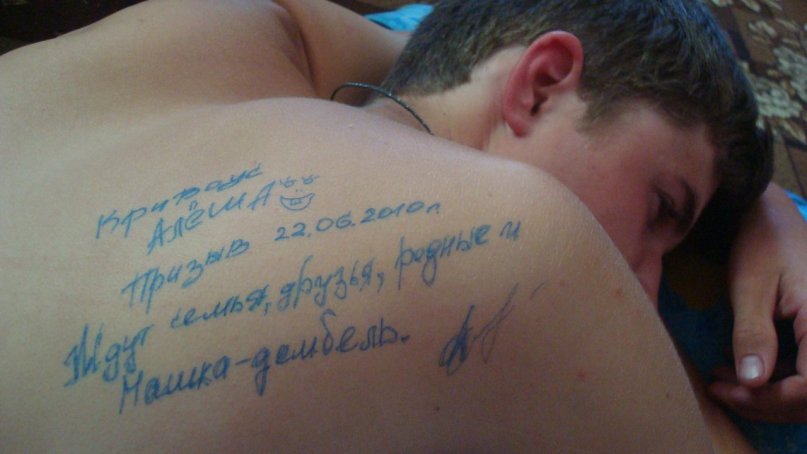 Кривоус
АЛЁША
Призыв 22.06.2010г.
Ждут семья, друзья, родные и
Машка-дембель.